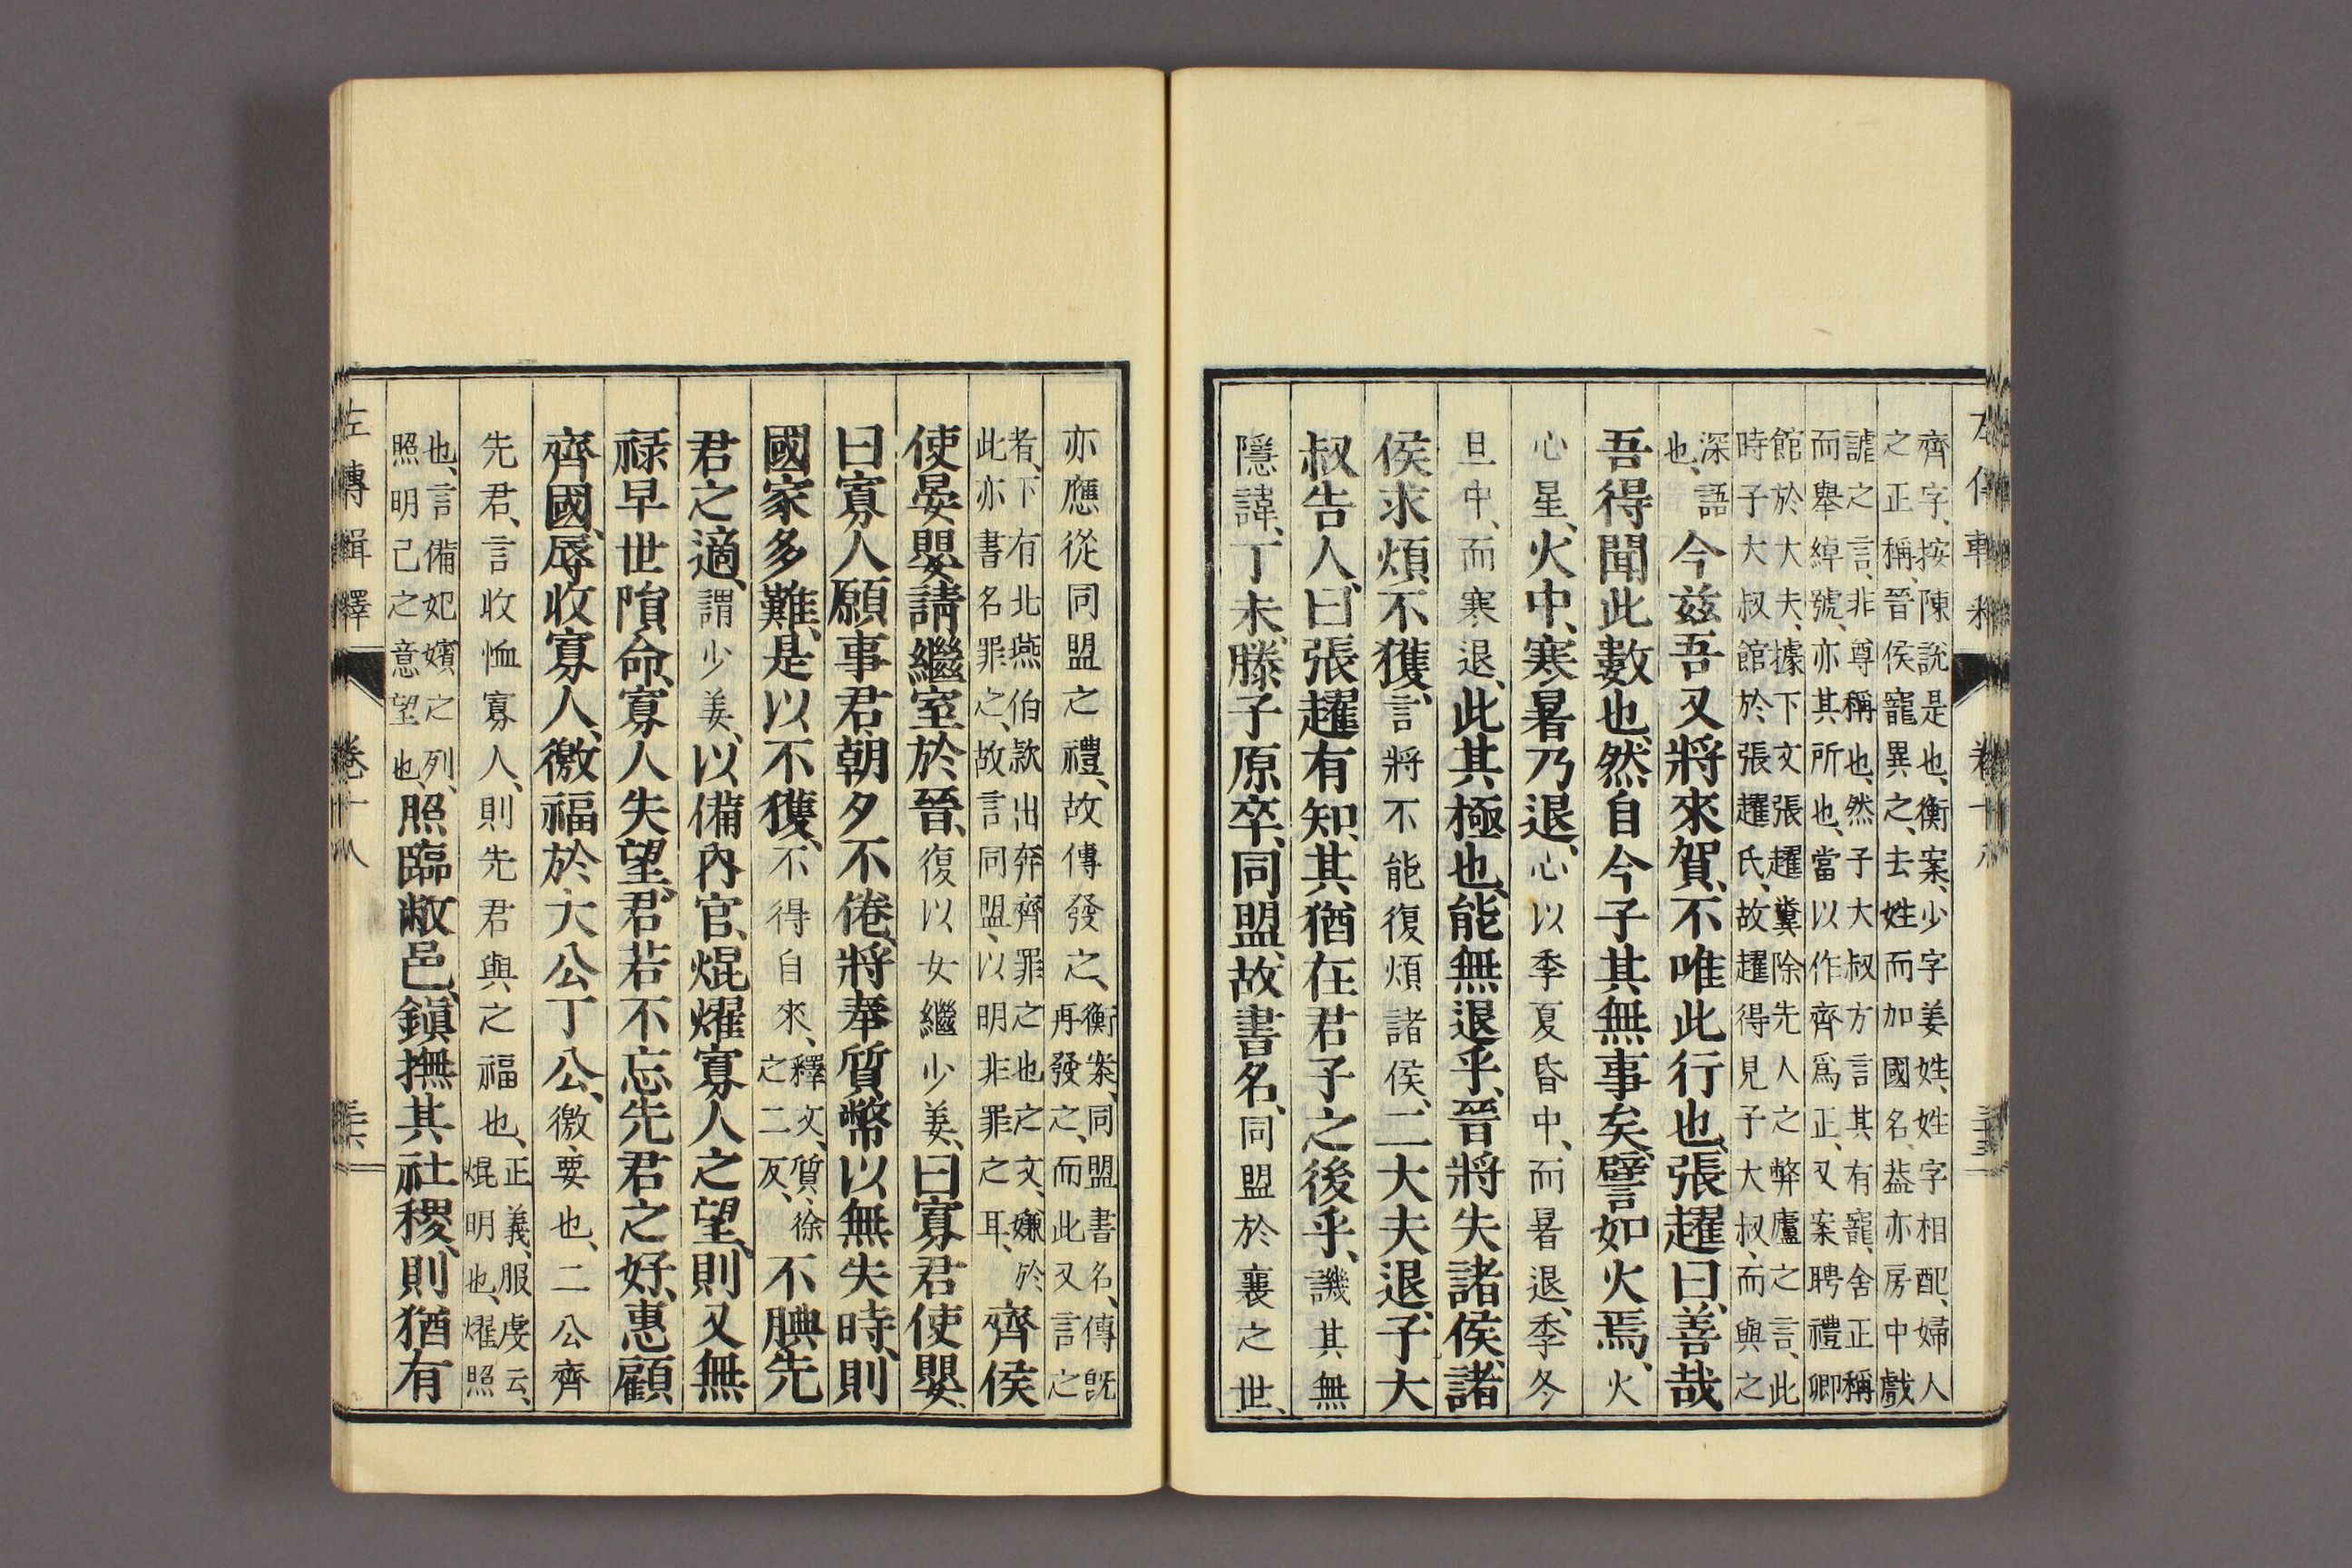 齊字、按陳說是也、衡案、少字姜姓、姓字相配、婦人
之正稱、晉侯寵異之、去姓而加國名、葢亦房中戲
謔之言、非尊稱也、然子大叔方言其有寵、舍正稱
而舉綽號、亦其所也、當以作齊爲正、又案聘禮卿
館於大夫、據下文張趯糞除先人之弊廬之言、此
時子大叔館於張趯氏、故趯得見子大叔、而與之
深語
也、
今茲吾又將來賀、不唯此行也、張趯曰、善哉
吾得聞此數也、然自今子其無事矣、譬如火焉、火
心星、火中、寒暑乃退、心以季夏昏中、而暑退、季冬
旦中、而寒退、此其極也、能無退乎、晉將失諸侯、諸
侯求煩不獲、言將不能復煩諸侯、二大夫退、子大
叔告人、曰張趯有知、其猶在君子之後乎、譏其無
隱諱、丁未、滕子原卒、同盟、故書名、同盟於襄之世、
亦應從同盟之禮、故傳發之、
衡案、同盟書名、傳旣
再發之、而此又言之
者、下有北燕伯款出奔齊罪之也之文、嫌於
此亦書名罪之、故言同盟、以明非罪之耳、
齊侯
使晏嬰請繼室於晉、復以女繼少姜、曰寡君使嬰、
曰寡人願事君、朝夕不倦、將奉質幣以無失時、則
國家多難、是以不獲、不得自來、
釋文、質、徐
之二反、
不腆先
君之適、謂少姜、以備內官、焜燿寡人之望、則又無
祿早世隕命、寡人失望、君若不忘先君之好、惠顧
齊國、辱收寡人、徼福於大公丁公、徼、要也、二公齊
先君、言收恤寡人、則先君與之福也、
正義、服虔云、
焜明也、燿照
也、言備妃嬪之列、
照明己之意望也、
照臨敝邑、鎭撫其社稷、則猶有
左傳輯釋
卷十八